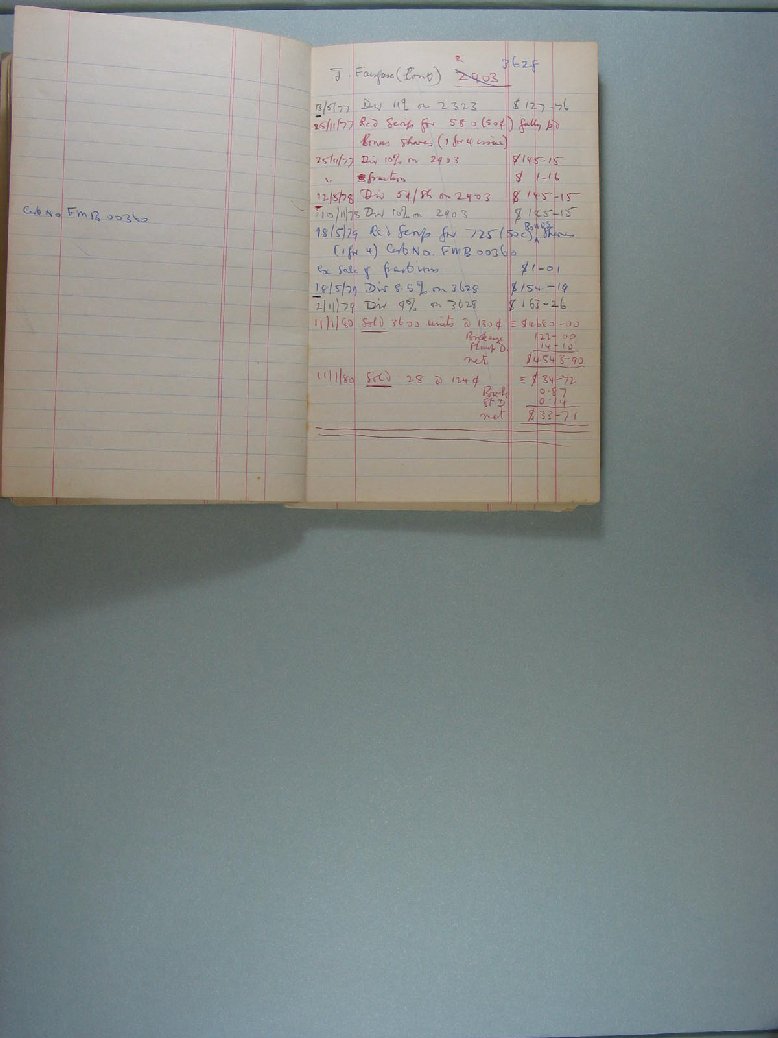 Cert No FMB 00360
J. Fairfax (Cont) 2903 3628
13/5/77 Div 11% on 2323 $ 127-76
25/11/77 Rc'd Scrip for 580 (50¢) fully pd
Bonus Shares (1 for 4 issue)
25/11/77 Div 10% on 2903 $ 145-15
" fraction $ 1-16
12/5/78 Div 5¢/Sh on 2903 $ 145-15
10/11/78 Div 10% on 2903 $ 145-15
18/5/79 Rc'd Scrip for 725 (50¢) Bonus Shares
(1 for 4) Cert No. FMB 00360
ex sale of fractions $1-01
18/5/79 Div 8.5% on 3628 $ 154-19
2/11/79 Div 9% on 3628 $ 163-26
11/1/80 Sold 3600 units @ 130¢ = $4680-00
Brokerage 122-00
Stamp D. 14-10
net $4543-90
11/1/80 Sold 28 @ 124¢ = $34-72
Brok 0.87
St D 0.14
net $33-71